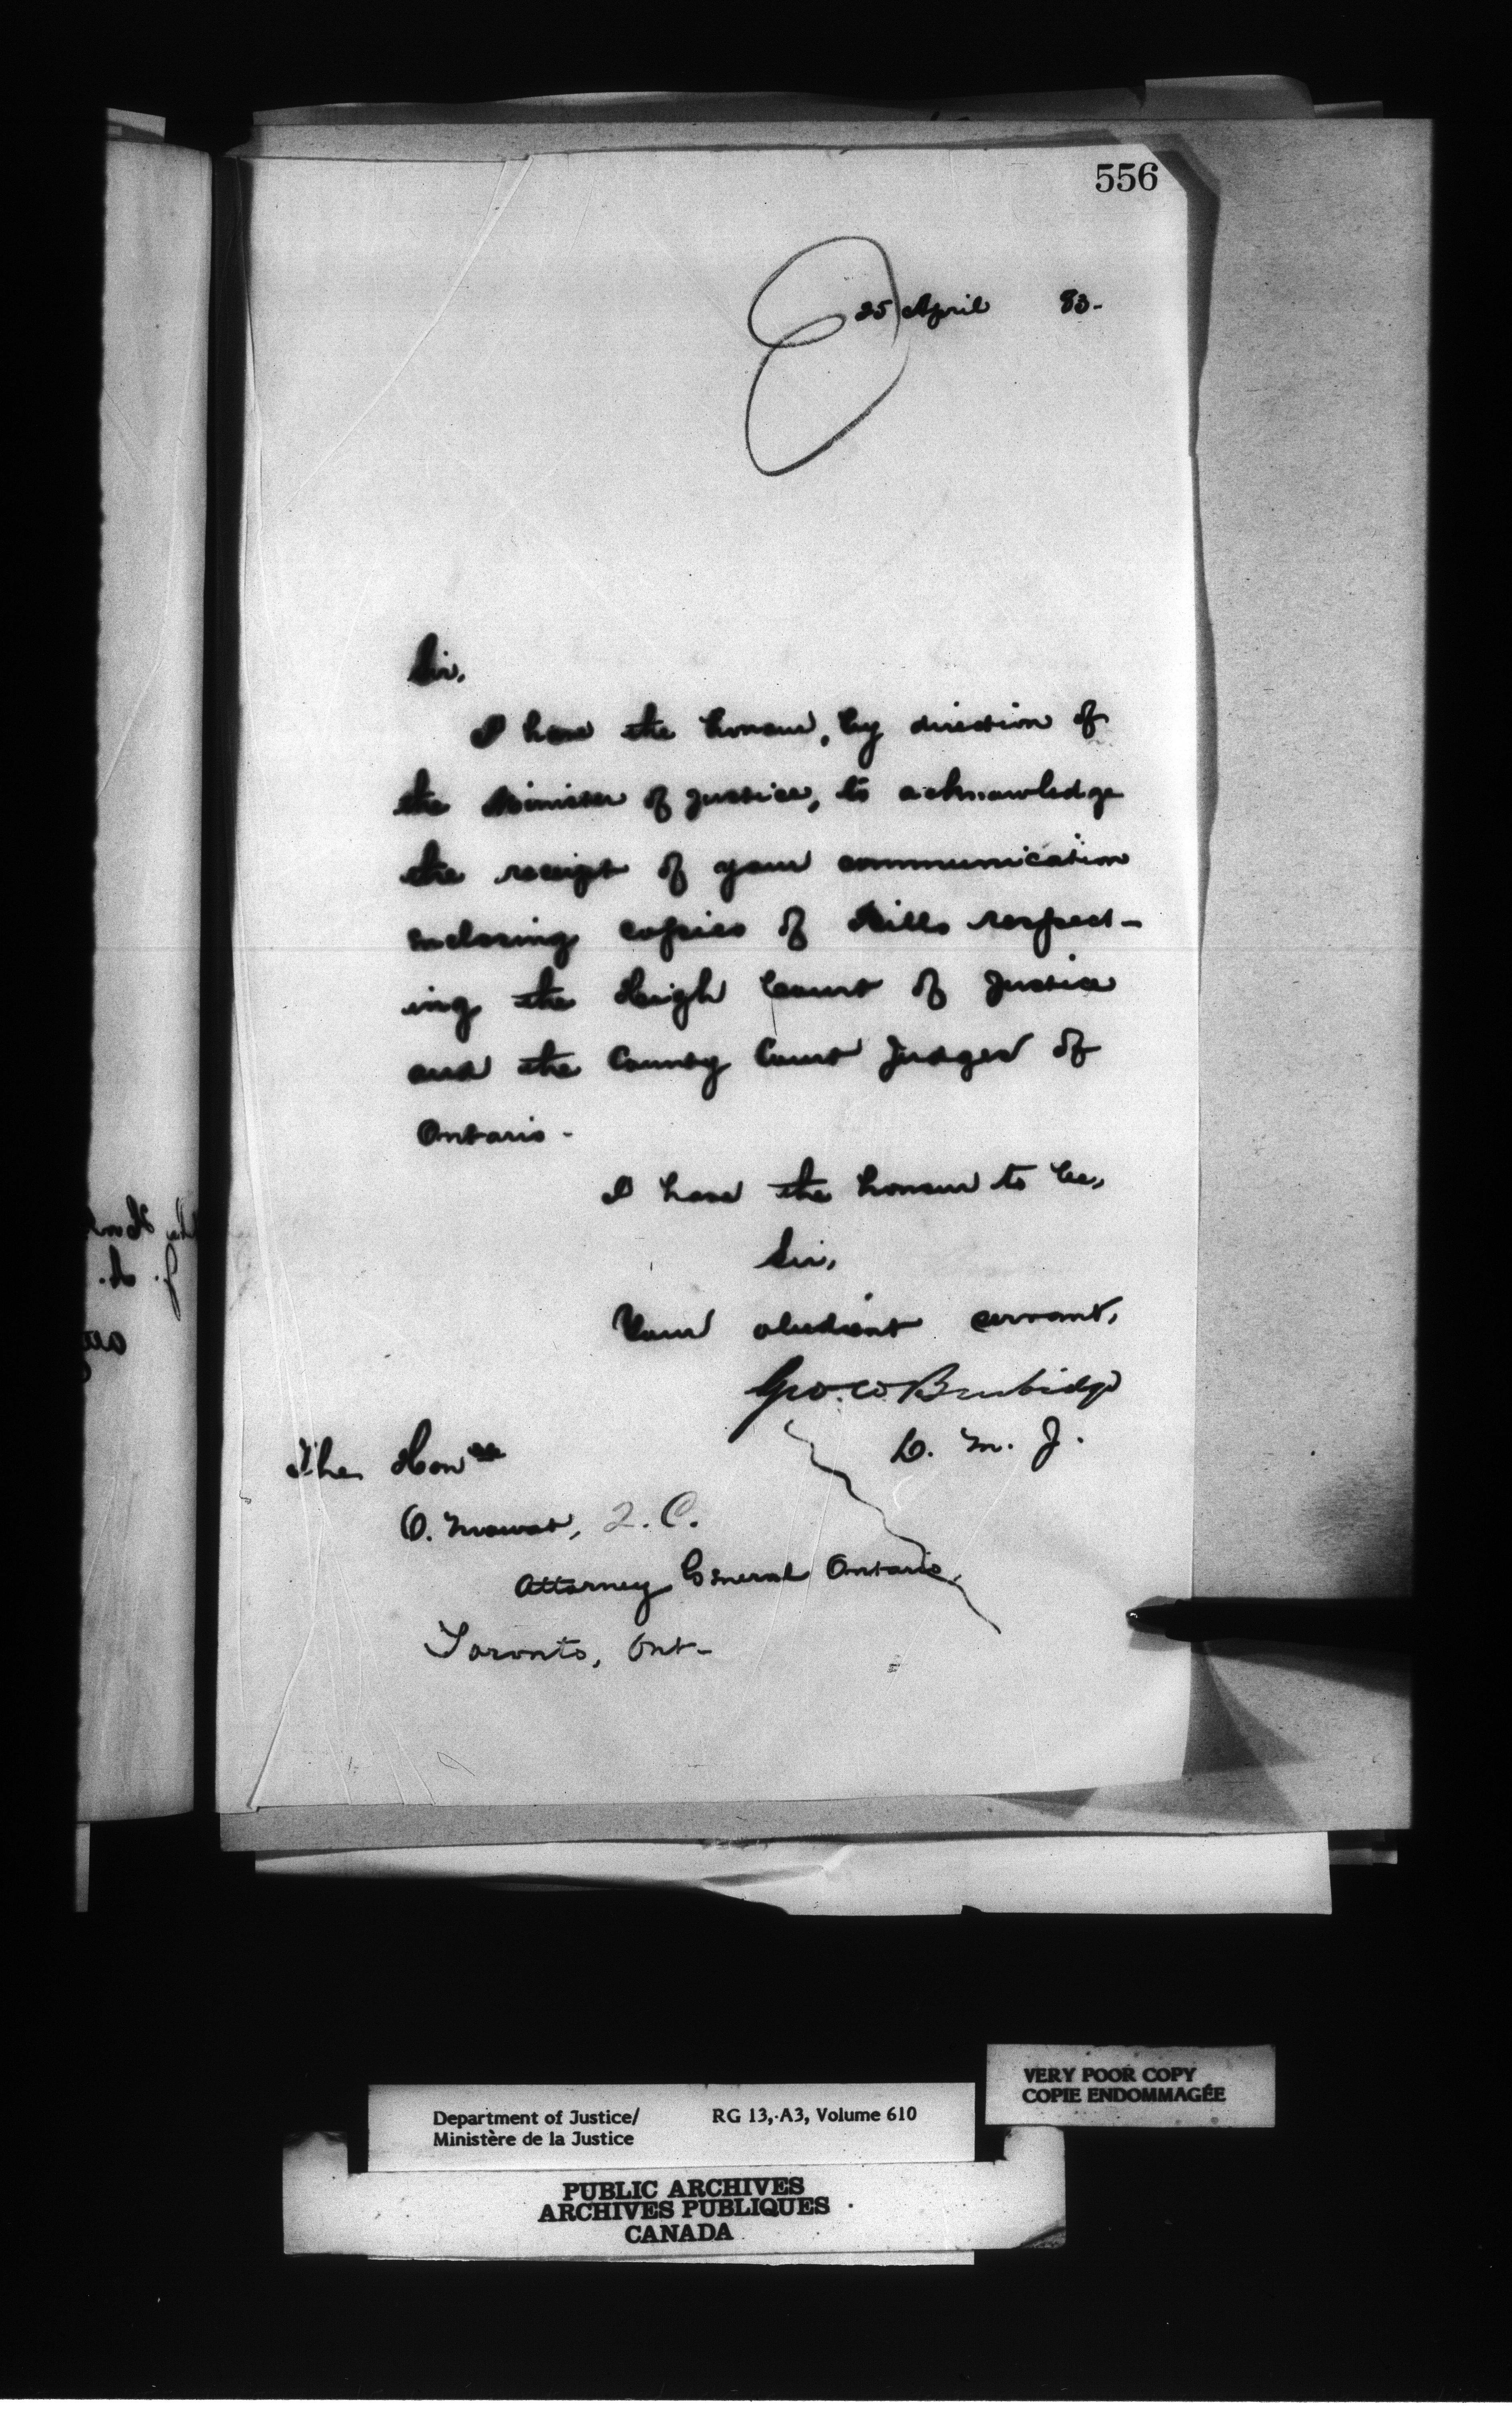 556
25 April 83-
Sir,
I have the honour, by direction of
the Minister of Justice, to acknowledge
the receipt of your communication
enclosing copies of Bills respect-
ing the High Court of Justice
and the County Court Judges of
Ontario -
I have the honour to be,
Sir,
Your obedient servant,
Geo. W. Burbidge
D. M. J.
The Honble
O. Mowat, Q.C.
Attorney General Ontario,
Toronto, Ont-
VERY POOR COPY
COPIE ENDOMMAGÉE
Department of Justice/ RG 13, A3, Volume 610
Ministère de la Justice
PUBLIC ARCHIVES
ARCHIVES PUBLIQUES
CANADA